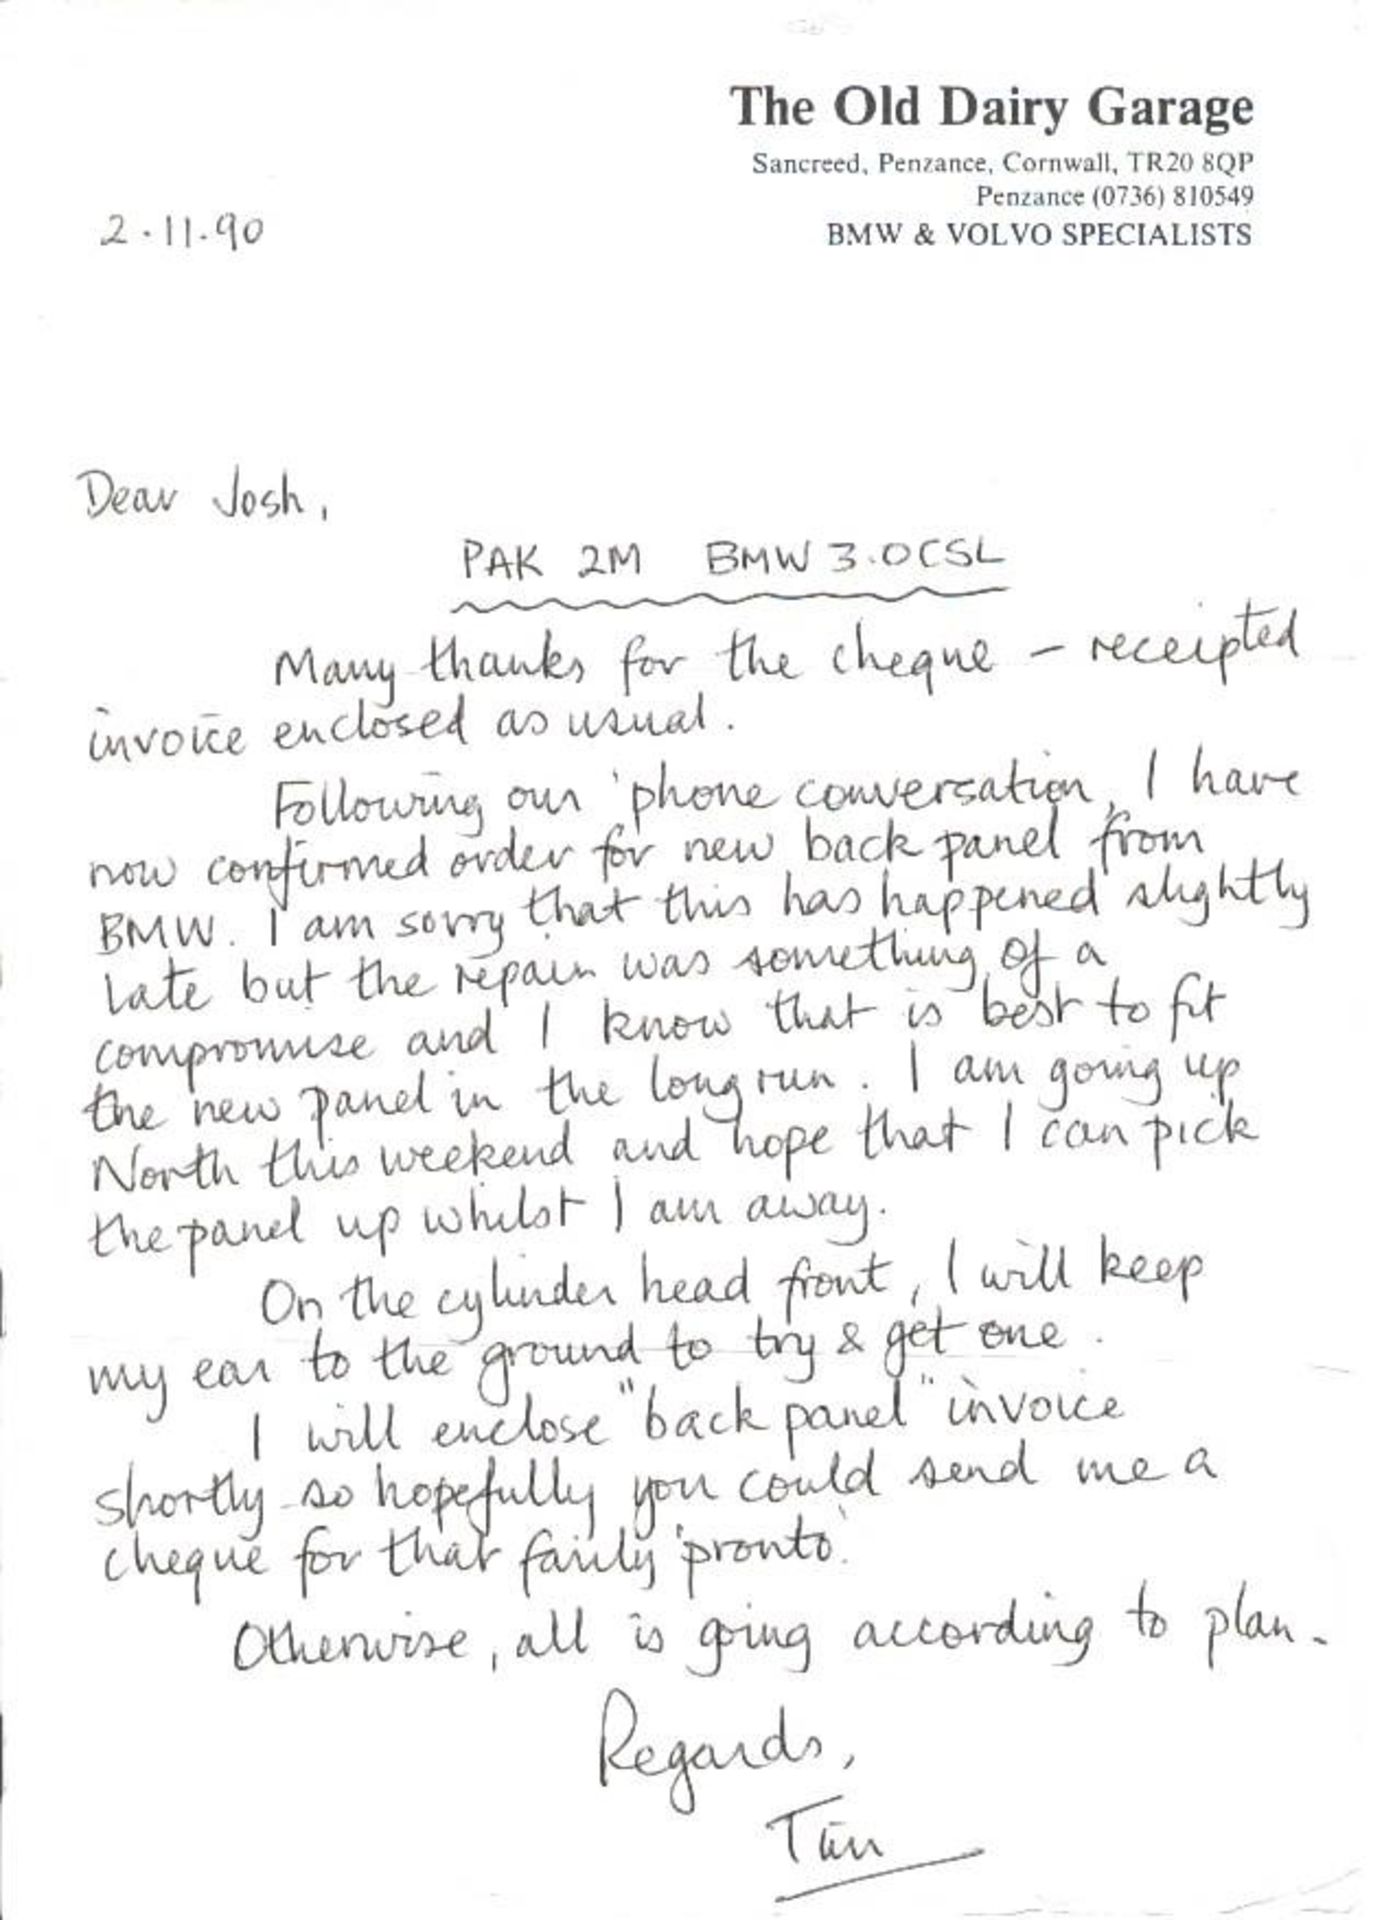 The Old Dairy Garage
Sancreed, Penzance, Cornwall, TR20 8QP
Penzance (0736) 810549
BMW & VOLVO SPECIALISTS
2.11.90
Dear Josh,
PAK 2M BMW 3.0CSL
Many thanks for the cheque - receipted
invoice enclosed as usual.
Following our 'phone conversation, I have
now confirmed order for new back panel from
BMW. I am sorry that this has happened slightly
late but the repair was something of a
compromise and I know that is best to fit
the new panel in the long run. I am going up
North this weekend and hope that I can pick
the panel up whilst I am away.
On the cylinder head front, I will keep
my ear to the ground to try & get one.
I will enclose "back panel" invoice
shortly so hopefully you could send me a
cheque for that fairly 'pronto'.
Otherwise, all is going according to plan.
Regards,
Tim